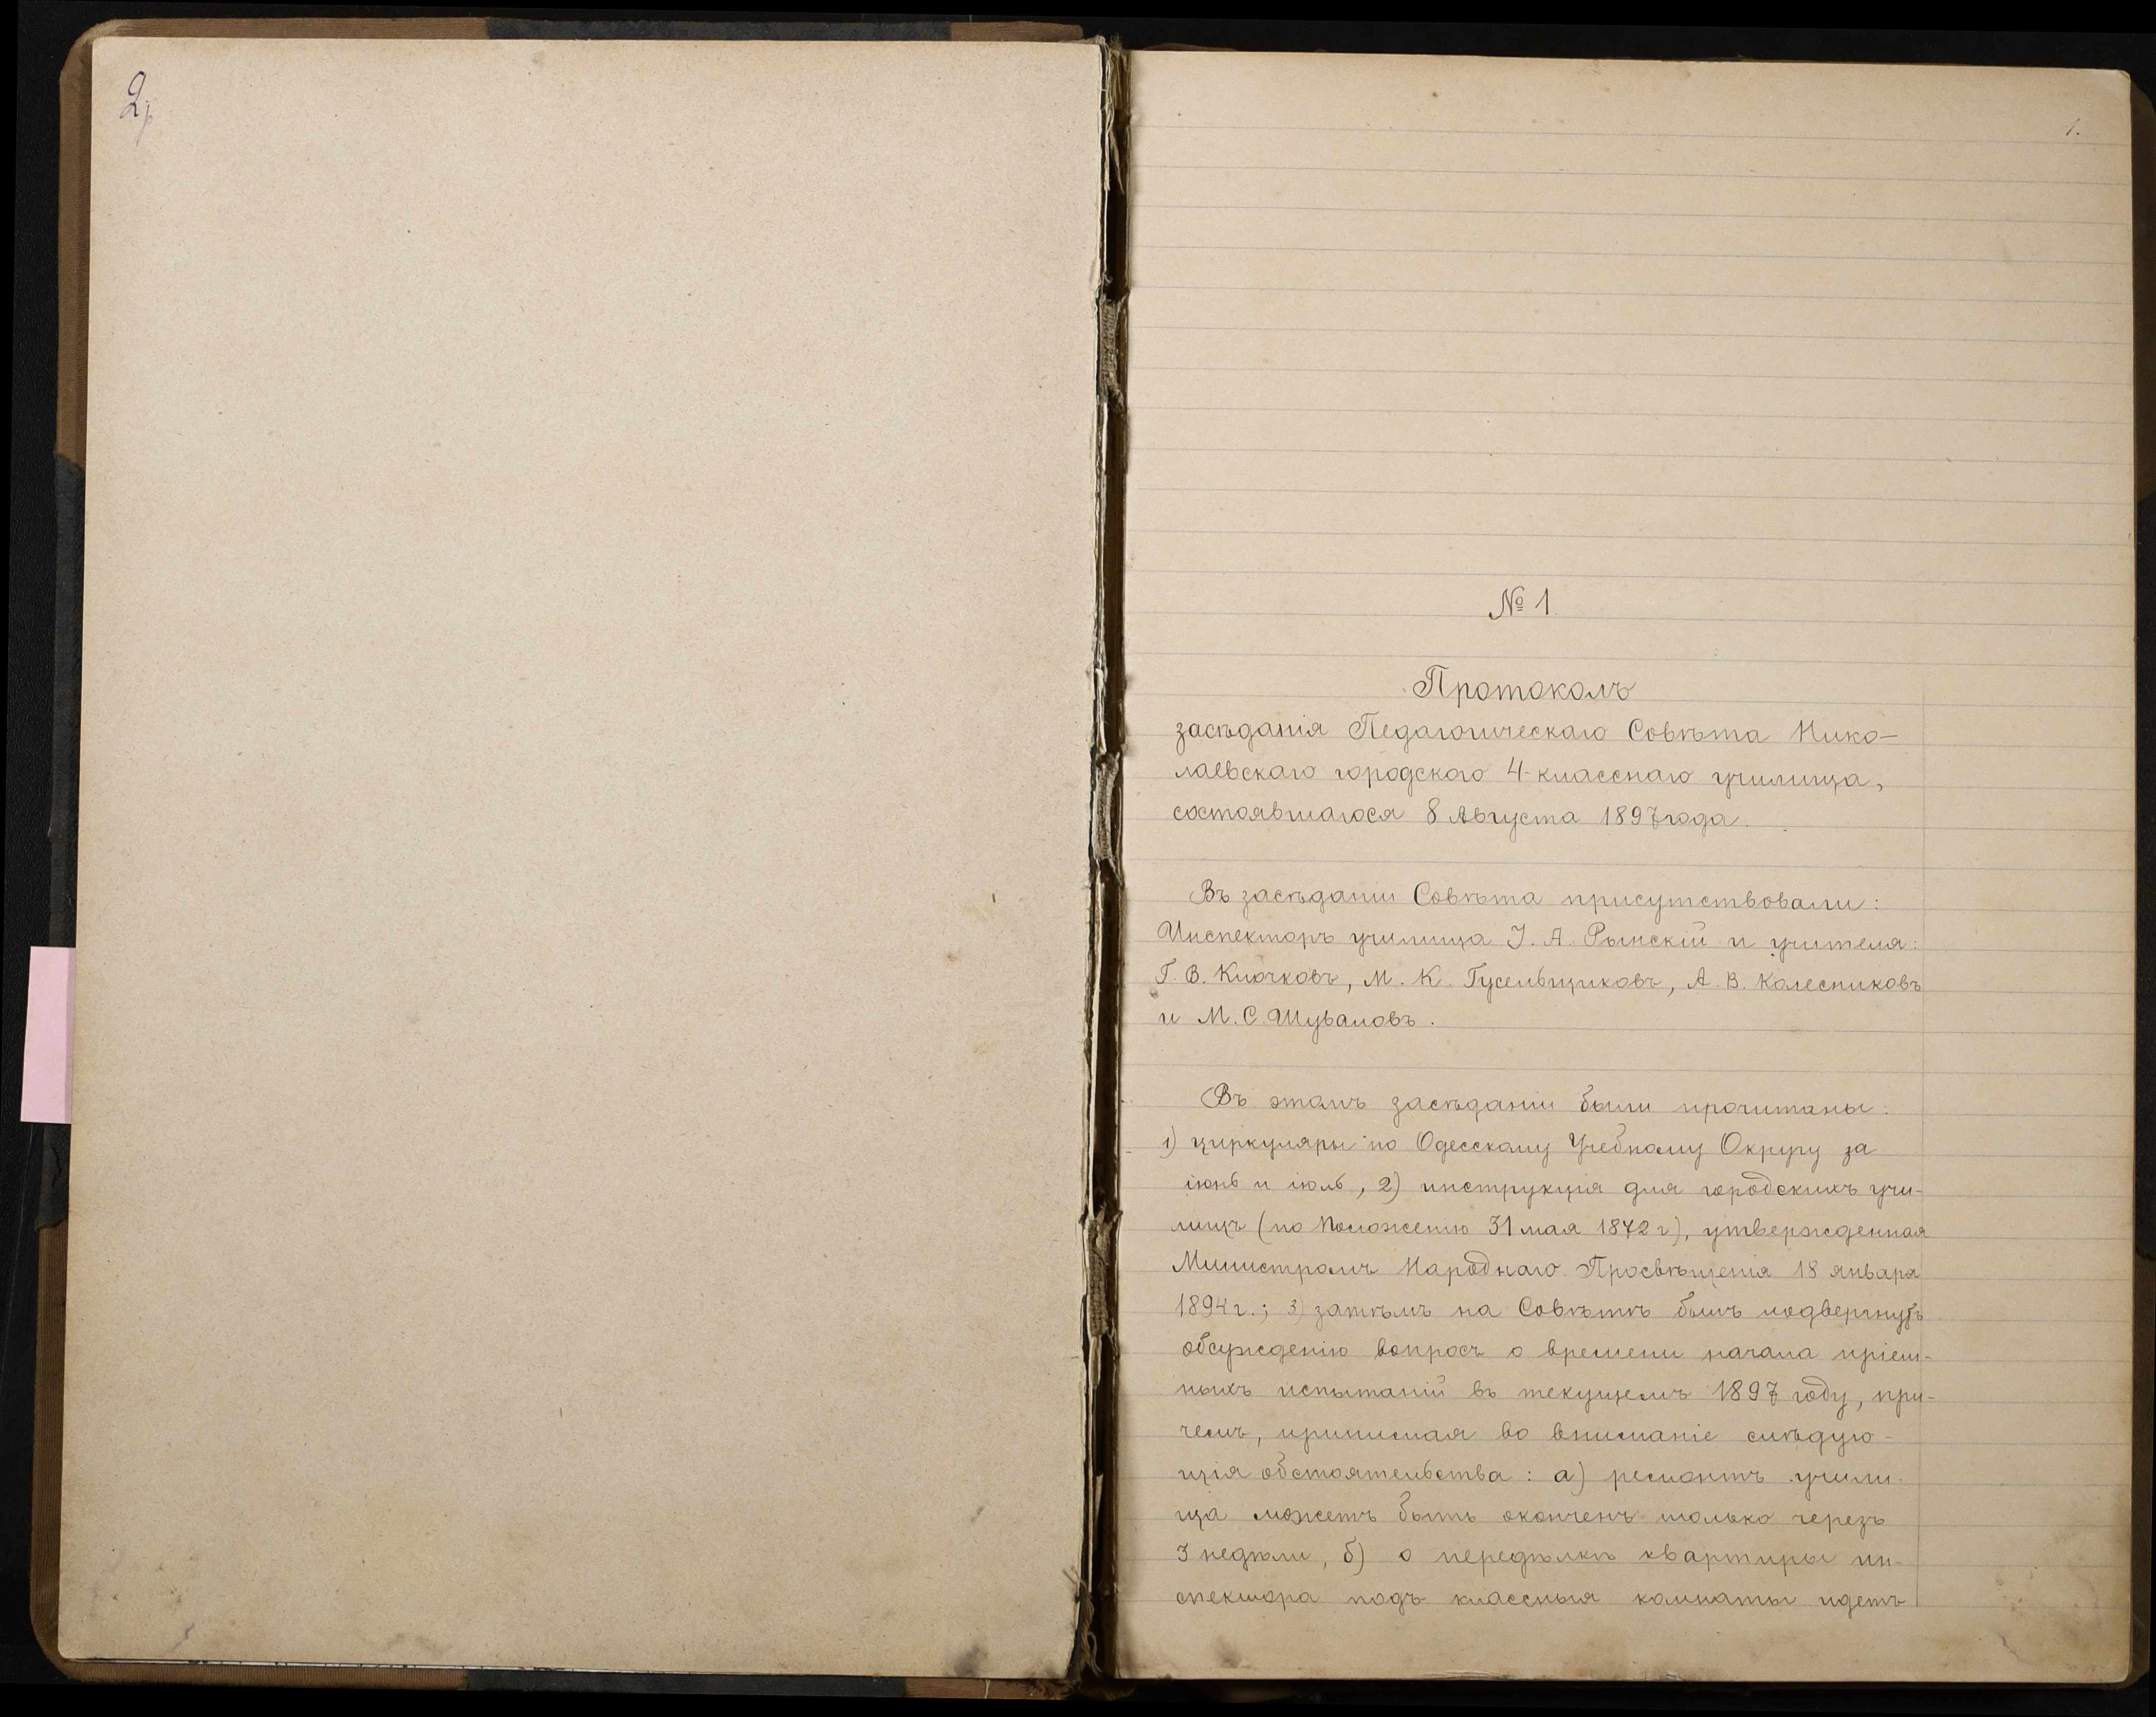 2
1.
№ 1
Протоколъ
засѣданія Педагогическаго Совѣта Нико-
лаевскаго городского 4-класснаго училища,
состоявшагося 8 Августа 1897 года.
Въ засѣданіи Совѣта присутствовали:
Инспекторъ училища І. А. Рынскій и учителя:
Г. В. Клочковъ, М. К. Гусельщиковъ, А. В. Колесниковъ
и М. С. Шуваловъ.
Въ этомъ засѣданіи были прочитаны:
1) циркуляры по Одесскому Учебному Округу за
іюнь и іюль, 2) инструкція для городскихъ учи-
лищъ (по Положенію 31 мая 1872 г), утвержденная
Министромъ Народнаго Просвѣщенія 18 января
1894 г.; 3) затѣмъ на Совѣтѣ былъ подвергнутъ
обсужденію вопросъ о времени начала пріем-
ныхъ испытаній въ текущемъ 1897 году, при-
чемъ, принимая во вниманіе слѣдую-
щія обстоятельства: а) ремонтъ учили-
ща можетъ быть оконченъ только черезъ
3 недѣли, б) о передѣлкѣ квартиры ин-
спектора подъ классныя комнаты идетъ